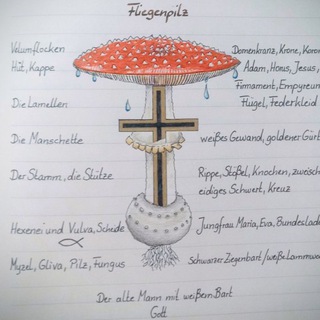 Fliegenpilz
Velumflocken
Domenkranz, Krone, Koron
Hut, Kappe
Adam, Horus, Jesus,
Firmament, Empyreum
Die Lamellen
Flügel, Federkleid
Die Manschette
weißes Gewand, goldener Gürt
Der Stamm, die Stütze
Rippe, Stößel, Knochen, zweisch
eidiges Schwert, Kreuz
Hexenei und Vulva, Scheide
Jungfrau Maria, Eva, Bundeslade
Myzel, Gliva, Pilz, Fungus
Schwarzer Ziegenbart/weiße Lammwo
Der alte Mann mit weißem Bart
Gott